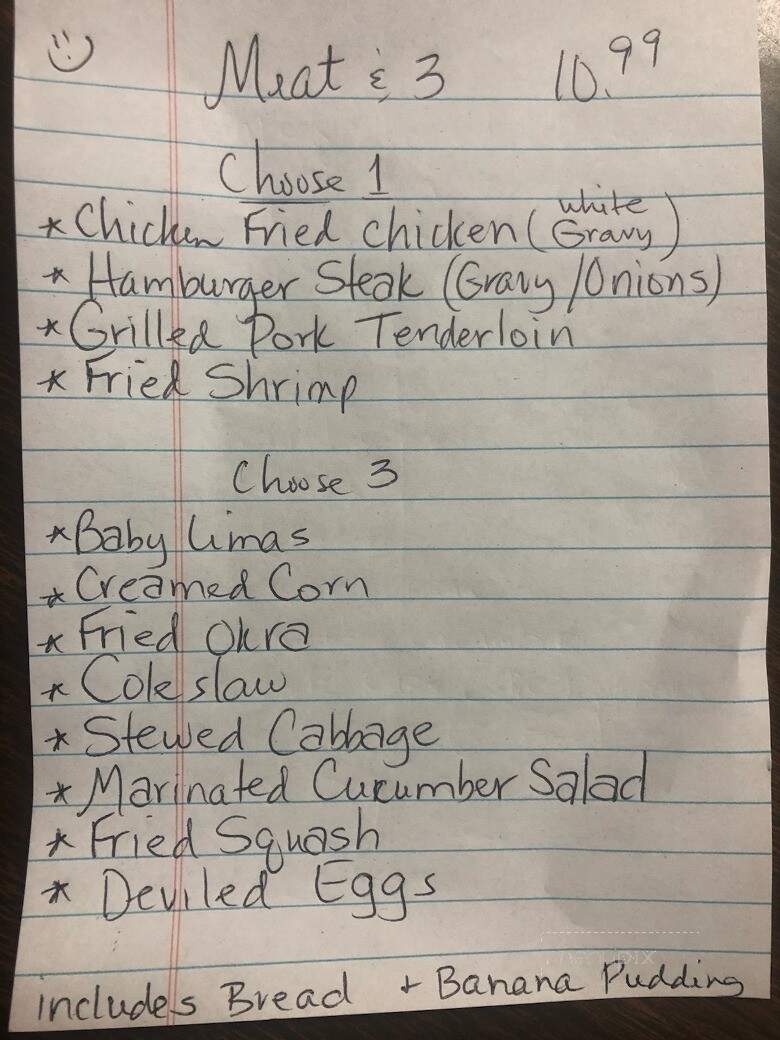 Meat & 3 10.99
Choose 1
* Chicken Fried Chicken (White Gravy)
* Hamburger Steak (Gravy/Onions)
* Grilled Pork Tenderloin
* Fried Shrimp
Choose 3
* Baby limas
* Creamed Corn
* Fried Okra
* Coleslaw
* Stewed Cabbage
* Marinated Cucumber Salad
* Fried Squash
* Deviled Eggs
includes Bread + Banana Pudding